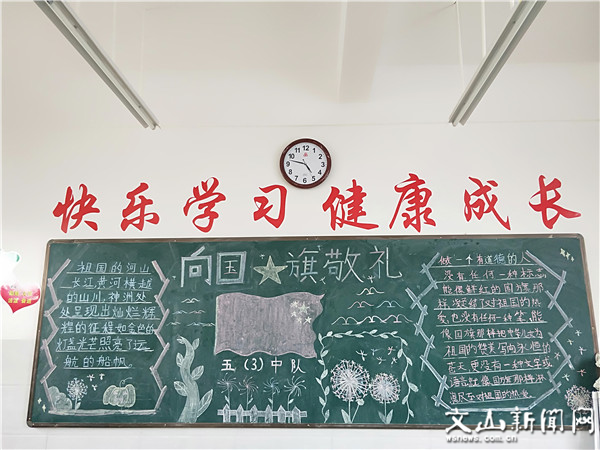 快乐学习 健康成长
向国旗敬礼
祖国的河山
长江黄河横越
的山川,神洲处
处呈现出灿烂辉
煌的征程如金色的
灯盏光芒照亮了远
航的船帆。
五(3)中队
做一个有道德的人
没有任何一种标志
能像鲜红的国旗那
对祖国的热
爱,也没有任何一种笔,能
像国旗那样把中华儿女为
祖国的赞美写向永恒的
蓝天,更没有一种文字或
语言就像国旗那样淋
漓尽 对祖国的热爱。
文山新闻网
wsnews.com.cn